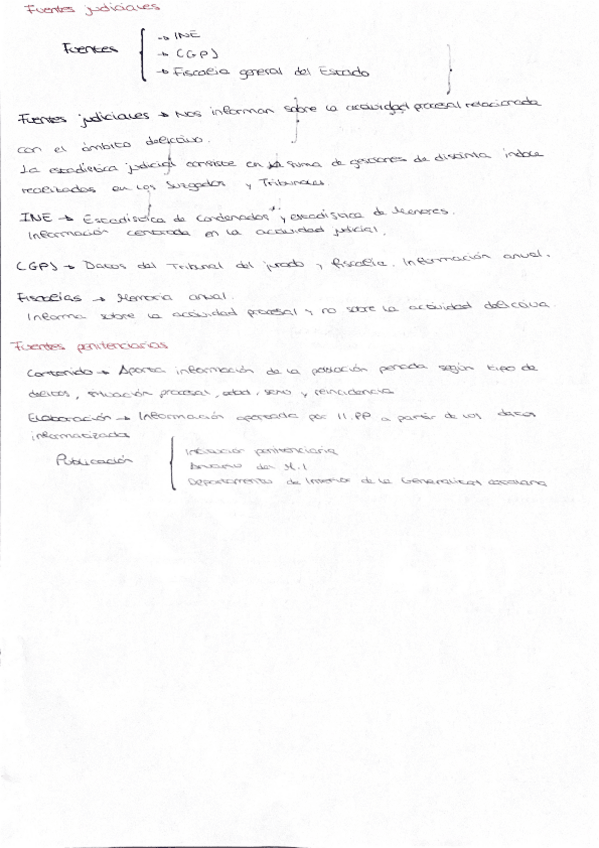 Fuentes judiciales
Fuentes
→ INE
→ CGPJ
→ Fiscalía general del Estado
Fuentes judiciales → Nos informan sobre la actividad procesal relacionada
con el ámbito delictivo.
La estadística judicial consiste en la suma de gestiones de distinta índole
realizados en los Juzgados y Tribunales.
INE → Estadística de Condenados y estadística de Menores.
Información centrada en la actividad judicial.
CGPJ → Datos del Tribunal del jurado y fiscalía. Información anual.
Fiscalías → Memoria anual.
Informa sobre la actividad procesal y no sobre la actividad delictiva.
Fuentes penitenciarias
Contenido → Aporta información de la población penada según tipo de
delitos, situación procesal, edad, sexo y reincidencia
Elaboración → Información aportada por II.PP a partir de los datos
informatizados
Publicación
Institución penitenciaria
Anuario del M.I
Departamento de Interior de la Generalitat catalana